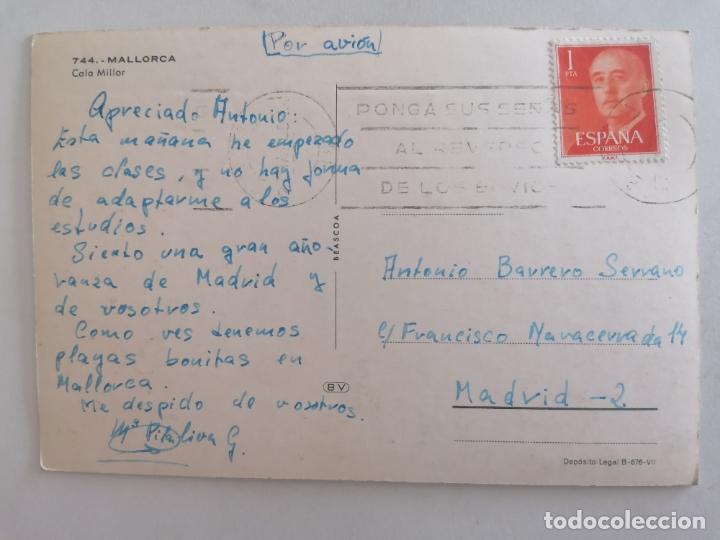 Por avión
744.-MALLORCA
Cala Millor
Apreciado Antonio:
Esta mañana he empezado
las clases, y no hay forma
de adaptarme a los
estudios.
Siento una gran año-
ranza de Madrid y
de vosotros.
Como ves tenemos
playas bonitas en
Mallorca.
Me despido de vosotros.
Mª
G.
BEASCOA
BV
1
PTA
ESPAÑA
CORREOS
PONGA SUS SEÑAS
AL REVERSO
DE LOS ENVIOS
Antonio Barrero Serrano
c/ Francisco Navacerrada 14
Madrid-2
Depósito Legal B-676-VII
todocoleccion.net